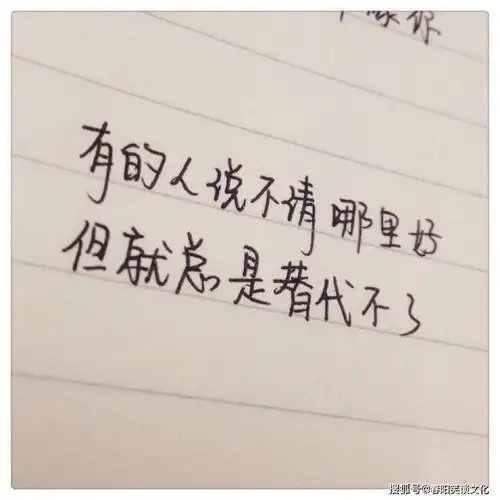 你
有的人说不清哪里好
但就总是替代不了
搜狐号@春阳笑谈文化